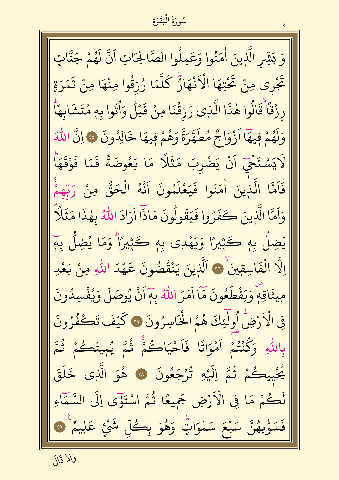 سُورَةُ الْبَقَرَةِ
٤
وَبَشِّرِ الَّذِينَ اٰمَنُوا وَعَمِلُوا الصَّالِحَاتِ اَنَّ لَهُمْ جَنَّاتٍ
تَجْرِى مِنْ تَحْتِهَا الْاَنْهَارُ كُلَّمَا رُزِقُوا مِنْهَا مِنْ ثَمَرَةٍ
رِزْقًا قَالُوا هٰذَا الَّذِى رُزِقْنَا مِنْ قَبْلُ وَاُتُوا بِهِ مُتَشَابِهًا
وَلَهُمْ فِيهَا اَزْوَاجٌ مُطَهَّرَةٌ وَهُمْ فِيهَا خَالِدُونَ ﴿٢٥﴾ اِنَّ اللّٰهَ
لَا يَسْتَحْيِى اَنْ يَضْرِبَ مَثَلًا مَا بَعُوضَةً فَمَا فَوْقَهَا
فَاَمَّا الَّذِينَ اٰمَنُوا فَيَعْلَمُونَ اَنَّهُ الْحَقُّ مِنْ رَبِّهِمْ
وَاَمَّا الَّذِينَ كَفَرُوا فَيَقُولُونَ مَاذَا اَرَادَ اللّٰهُ بِهٰذَا مَثَلًا
يُضِلُّ بِهِ كَثِيرًا وَيَهْدِى بِهِ كَثِيرًا وَمَا يُضِلُّ بِهِ
اِلَّا الْفَاسِقِينَ ﴿٢٦﴾ اَلَّذِينَ يَنْقُضُونَ عَهْدَ اللّٰهِ مِنْ بَعْدِ
مِيثَاقِهِ وَيَقْطَعُونَ مَا اَمَرَ اللّٰهُ بِهِ اَنْ يُوصَلَ وَيُفْسِدُونَ
فِى الْاَرْضِ اُولٰئِكَ هُمُ الْخَاسِرُونَ ﴿٢٧﴾ كَيْفَ تَكْفُرُونَ
بِاللّٰهِ وَكُنْتُمْ اَمْوَاتًا فَاَحْيَاكُمْ ثُمَّ يُمِيتُكُمْ ثُمَّ
يُحْيِيكُمْ ثُمَّ اِلَيْهِ تُرْجَعُونَ ﴿٢٨﴾ هُوَ الَّذِى خَلَقَ
لَكُمْ مَا فِى الْاَرْضِ جَمِيعًا ثُمَّ اسْتَوٰى اِلَى السَّمَاءِ
فَسَوّٰيهُنَّ سَبْعَ سَمٰوَاتٍ وَهُوَ بِكُلِّ شَىْءٍ عَلِيمٌ ﴿٢٩﴾
وَاِذْ قَالَ